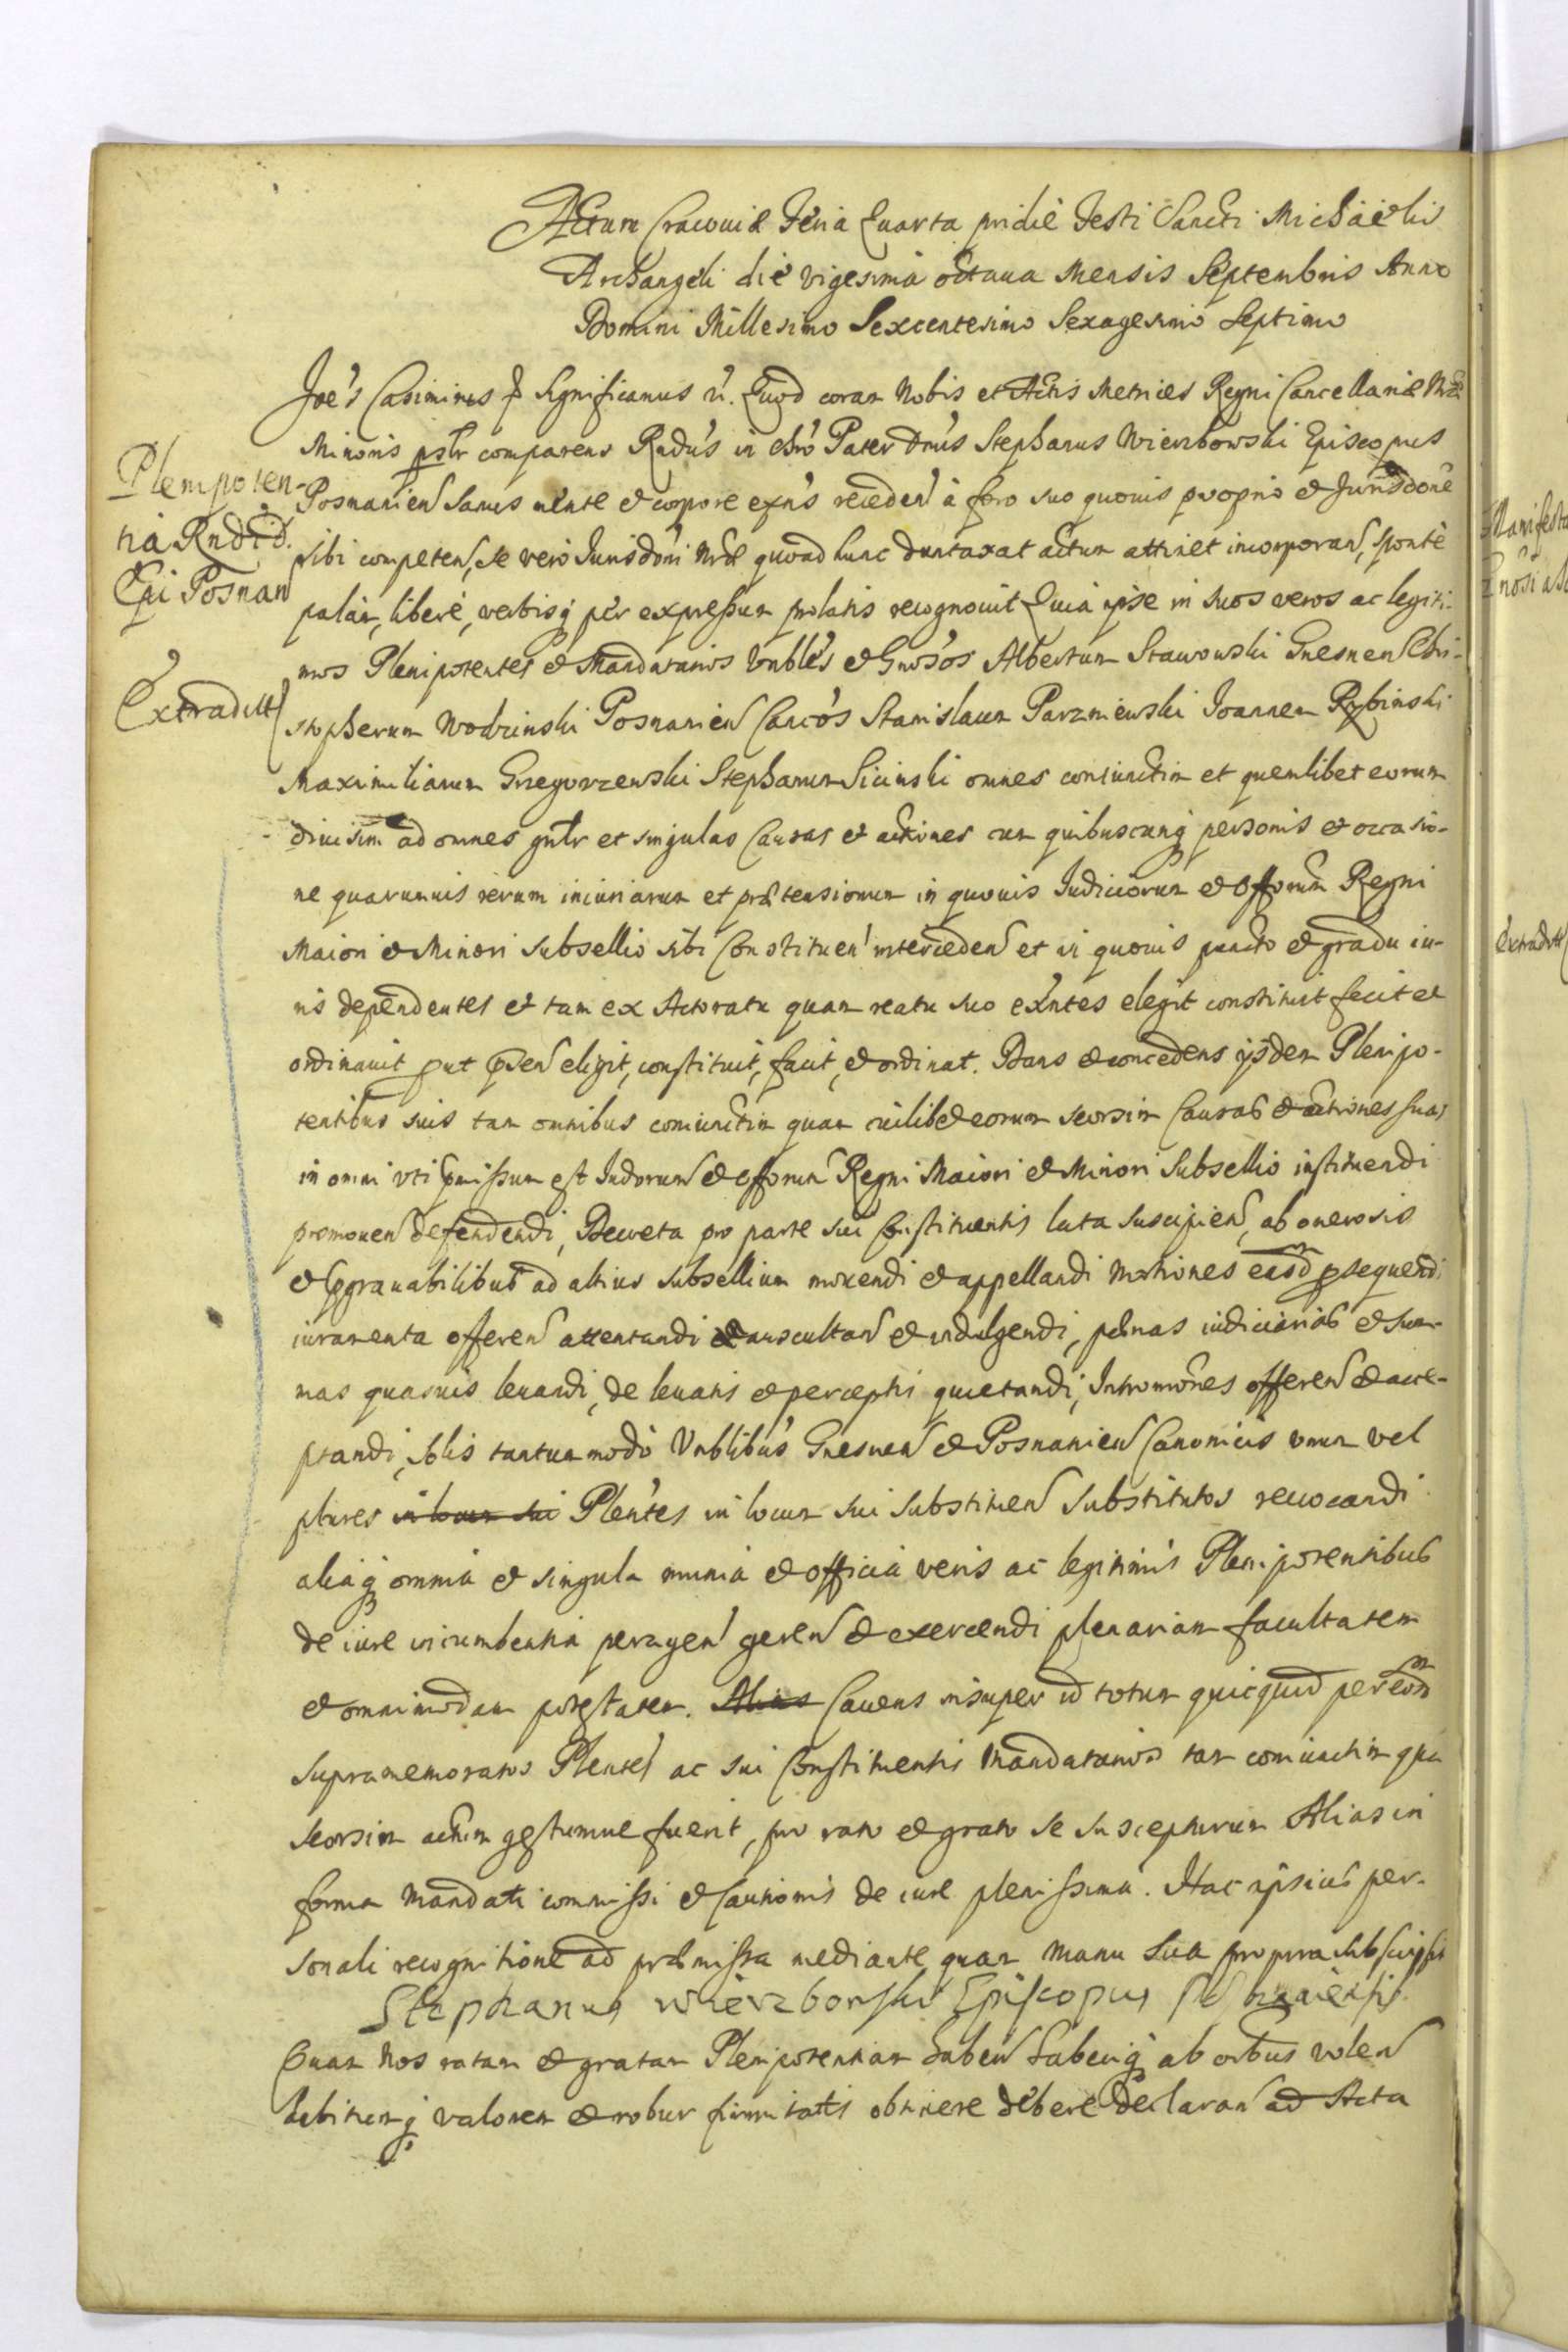 Actum Cracouiæ Feria Quarta pridie Festi Sancti Michaëlis
Archangeli die vigesima octaua Mensis Septembris Anno
Domini Millesimo Sexcentesimo Sexagesimo Septimo
Joe's Casimirus Significamus Quod coram Nobis et Actis Metrices Regni Cancellariæ
Minoris psltr comparens Rndus in chro Pater Dnus Stephanus Wierzbowski Episcopus
Plenipoten-
tia Rndi D.
Epi Posnan
Extradit
Posnanien Sanus mente et corpore exns receden à foro suo quouis proprio et Jurisdone
sibi competen, se vero Jurisdoni nræ quoad hunc duntaxat actum attinet incorporan, sponte
palam, libere, verbisq per expressum prolatis recognouit Quia ipse in suos veros ac legiti-
mos Plenipotentes et Mandatarios Vnbles et Gnosos Albertum Stawowski Gnesnen Chri-
stopherum Wodzinski Posnanien Cancos Stanislaum Parzniewski Joannem Rybinski
Maximilianum Grzegorzewski Stephanum Sicinski omnes coniunctim et quemlibet eorum
diuisim ad omnes gnlr et singulas Causas et actiones cum quibuscunq personis et occasio-
ne quarumuis rerum iniuriarum et prætensionum in quouis Judiciorum et Offorum Regni
Maiori et Minori Subsellio sibi Constituen interceden et in quouis puncto et gradu iu-
ris dependentes et tam ex Actoratu quam reatu suo exntes elegit constituit fecit et
ordinauit put psen eligit, constituit, facit, et ordinat. Dans et concedens ijsdem Plenipo-
tentibus suis tam omnibus coniunctim quam cuilibet eorum seorsim Causas et actiones suas
in omni vti pmissum est Judorum et offorum Regni Maiori et Minori Subsellio instituendi
promouen defendendi, Decreta pro parte sui Constituentis lata suscipien, ab onerosis
et ggrauabilibus ad altius subsellium mouendi et appellandi Motiones easd psequendi
iuramenta offeren attentandi et auscultan et indulgendi, pænas iudiciarias et sum-
mas quasuis leuandi, de leuatis et perceptis quietandi, Intromones offeren et acce-
ptandi, solis tantummodo Vnblibus Gnesnen et Posnanien Canonicis vnum vel
plures in locum sui Plentes in locum sui substituen Substitutos reuocandi
aliaq omnia et singula munia et officia veris ac legitimis Plenipotentibus
de iure incumbentia peragen geren et exercendi plenariam facultatem
et omnimodam potestatem. Alias Cauens insuper id totum quicquid per eosd
supramemoratos Plentes ac sui Constituentis Mandatarios tam coniunctim qua
seorsim actum gestumue fuerit, pro rato et grato se suscepturum Alias in
forma Mandati commissi et Cautionis de iure plenissima. Hac ipsius per-
sonali recognitione ad præmissa mediante quam manu sua propria subscripsit
Stephanus Wierzbowski Episcopus Posnaniensis
Quam Nos ratam et gratam Plenipotentiam haben haberiq ab oibus volen
debitumq valorem et robur firmitatis obtinere debere declaran ad Acta
Manifesta
extradit